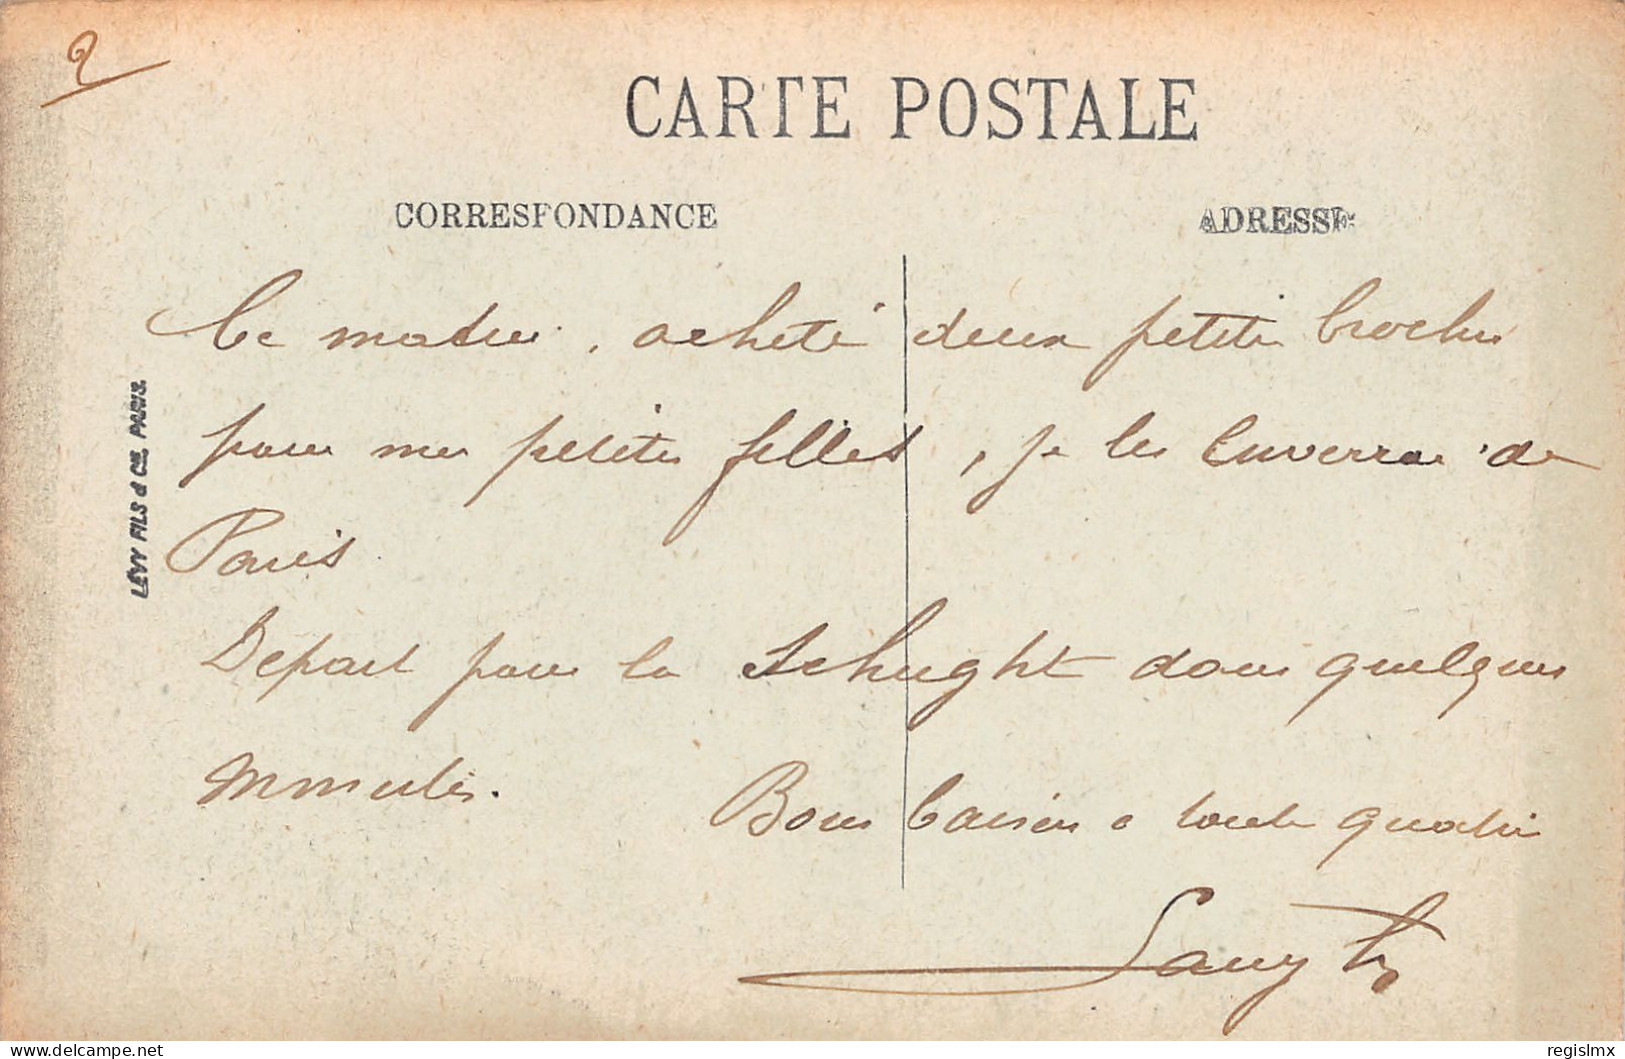 2
CARTE POSTALE
CORRESPONDANCE
ADRESSE
LÉVY FILS & CIE, PARIS.
Ce matin, acheté deux petites broches
pour mes petites filles, je les enverrai de
Paris
Départ pour la Schught dans quelques
minutes.
Bons baisers a toute quatre
delcampe.net
regislmx